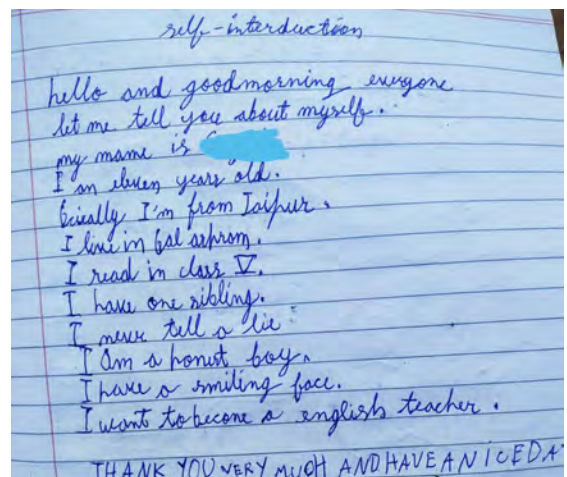 self-interduction
hello and goodmorning everyone
let me tell you about myself.
my mame is
I an eleven years old.
I'm from Jaipur.
I live in bal ashrom.
I read in class V.
I have one sibling.
I never tell a lie
I am a honest boy.
I have a smiling face.
I want to become a english teacher.
THANK YOU VERY MUCH AND HAVE A NICE DA